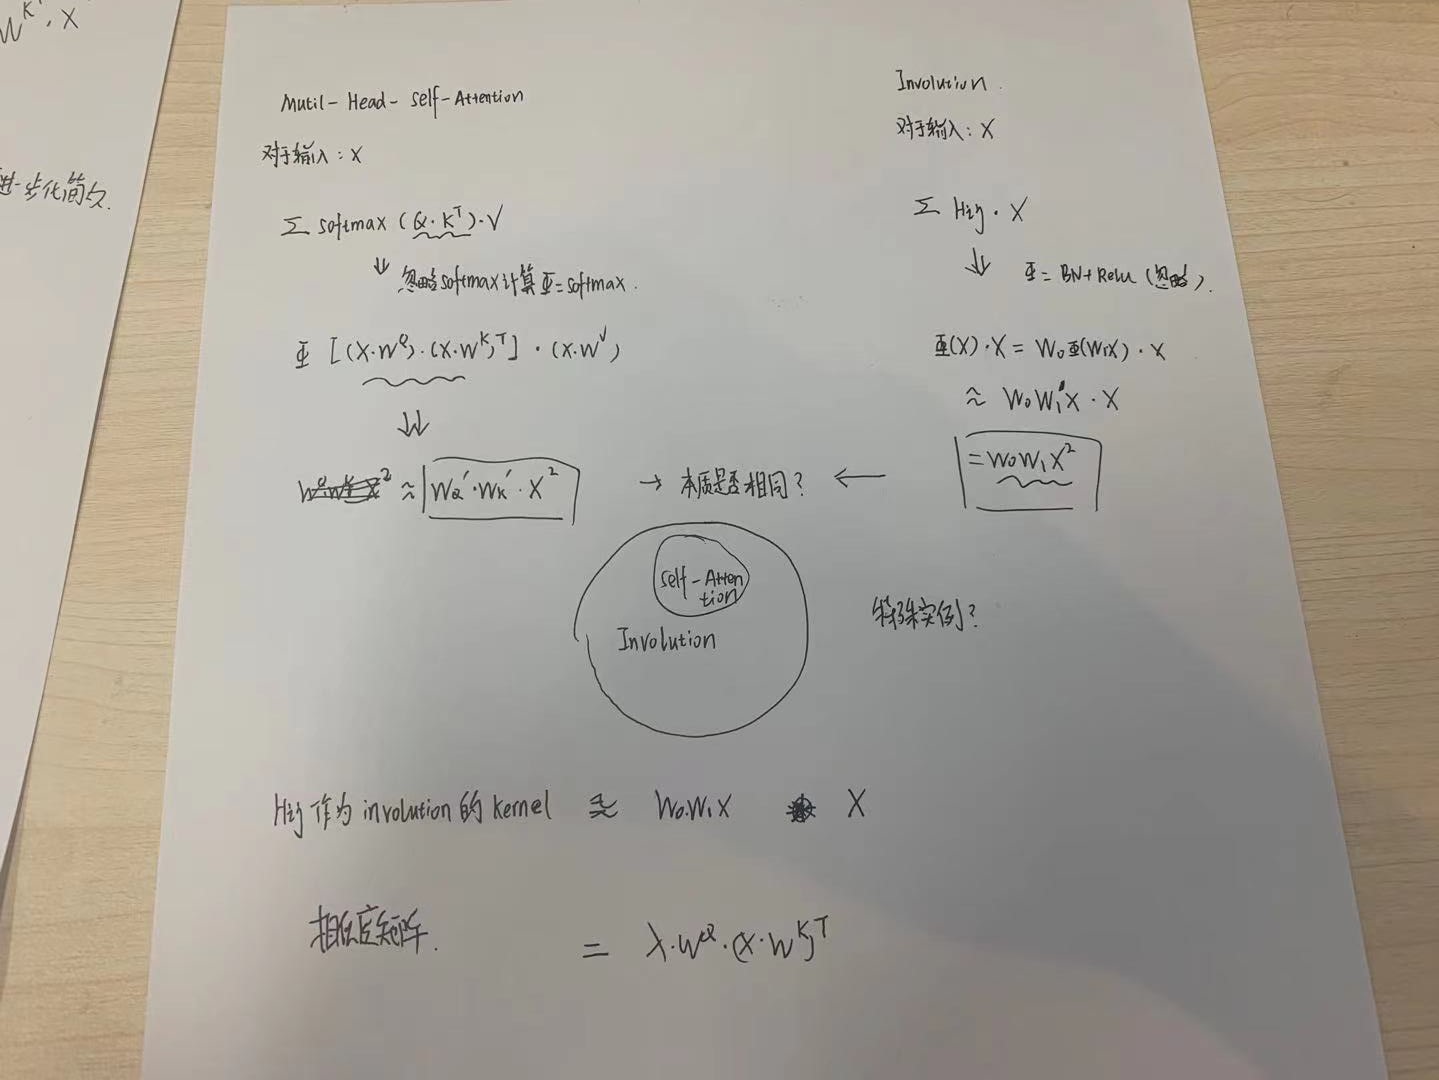 W^K · X
进一步化简久.
Mutil-Head-self-Attention
对于输入: X
Σ softmax (Q·K^T)·V
⇓ 忽略softmax计算 Φ=softmax.
Φ [(X·W^Q)·(X·W^K)^T] · (X·W^V)
⇓
≈ W_Q'·W_K'·X^2
→ 本质是否相同? ←
Involution.
对于输入: X
Σ Hij · X
⇓ Φ = BN+Relu (忽略).
Φ(X)·X = W0Φ(W1X)·X
≈ W0W1X · X
= W0W1X^2
self-Atten
tion
Involution
特殊实例?
Hij 作为 involution 的 kernel ≈ W0.W1X X
相似度矩阵. = X·W^Q·(X·W^K)^T